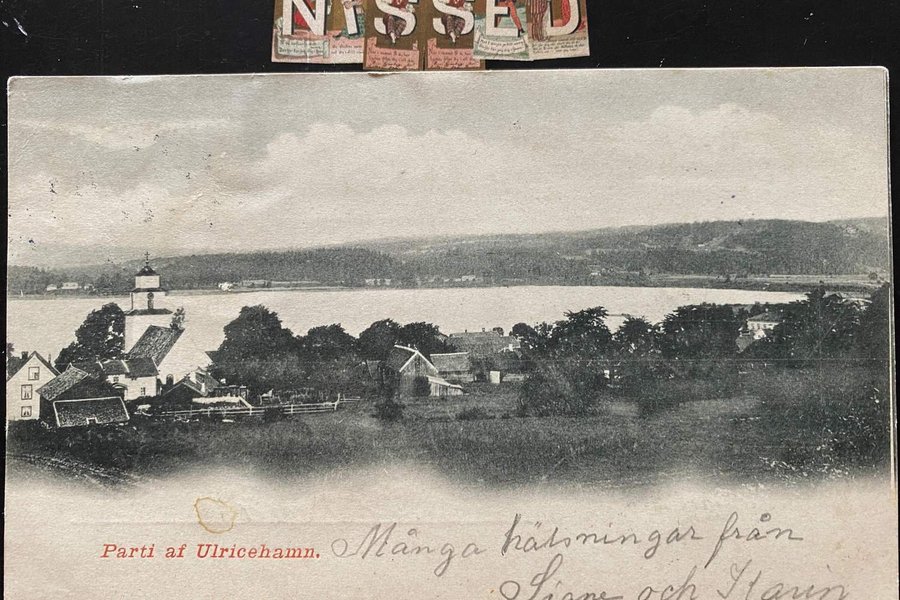 NISSED
Parti af Ulricehamn.
Många hälsningar från
Signe och Karin